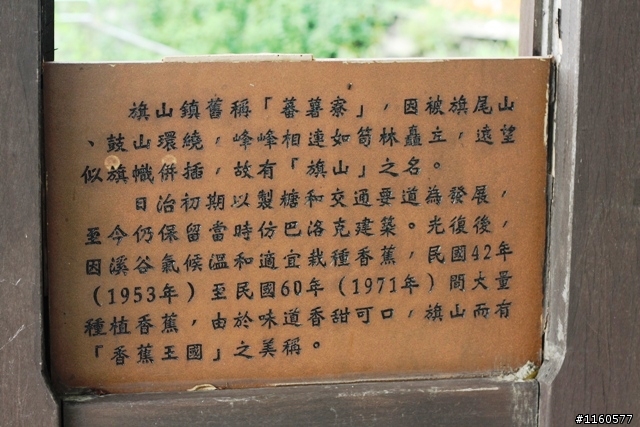 旗山鎮舊稱「蕃薯寮」，因被旗尾山
、鼓山環繞，峰峰相連如筍林矗立，遠望
似旗幟併插，故有「旗山」之名。
日治初期以製糖和交通要道為發展，
至今仍保留當時仿巴洛克建築。光復後，
因溪谷氣候溫和適宜栽種香蕉，民國42年
（1953年）至民國60年（1971年）間大量
種植香蕉，由於味道香甜可口，旗山而有
「香蕉王國」之美稱。
#1160577